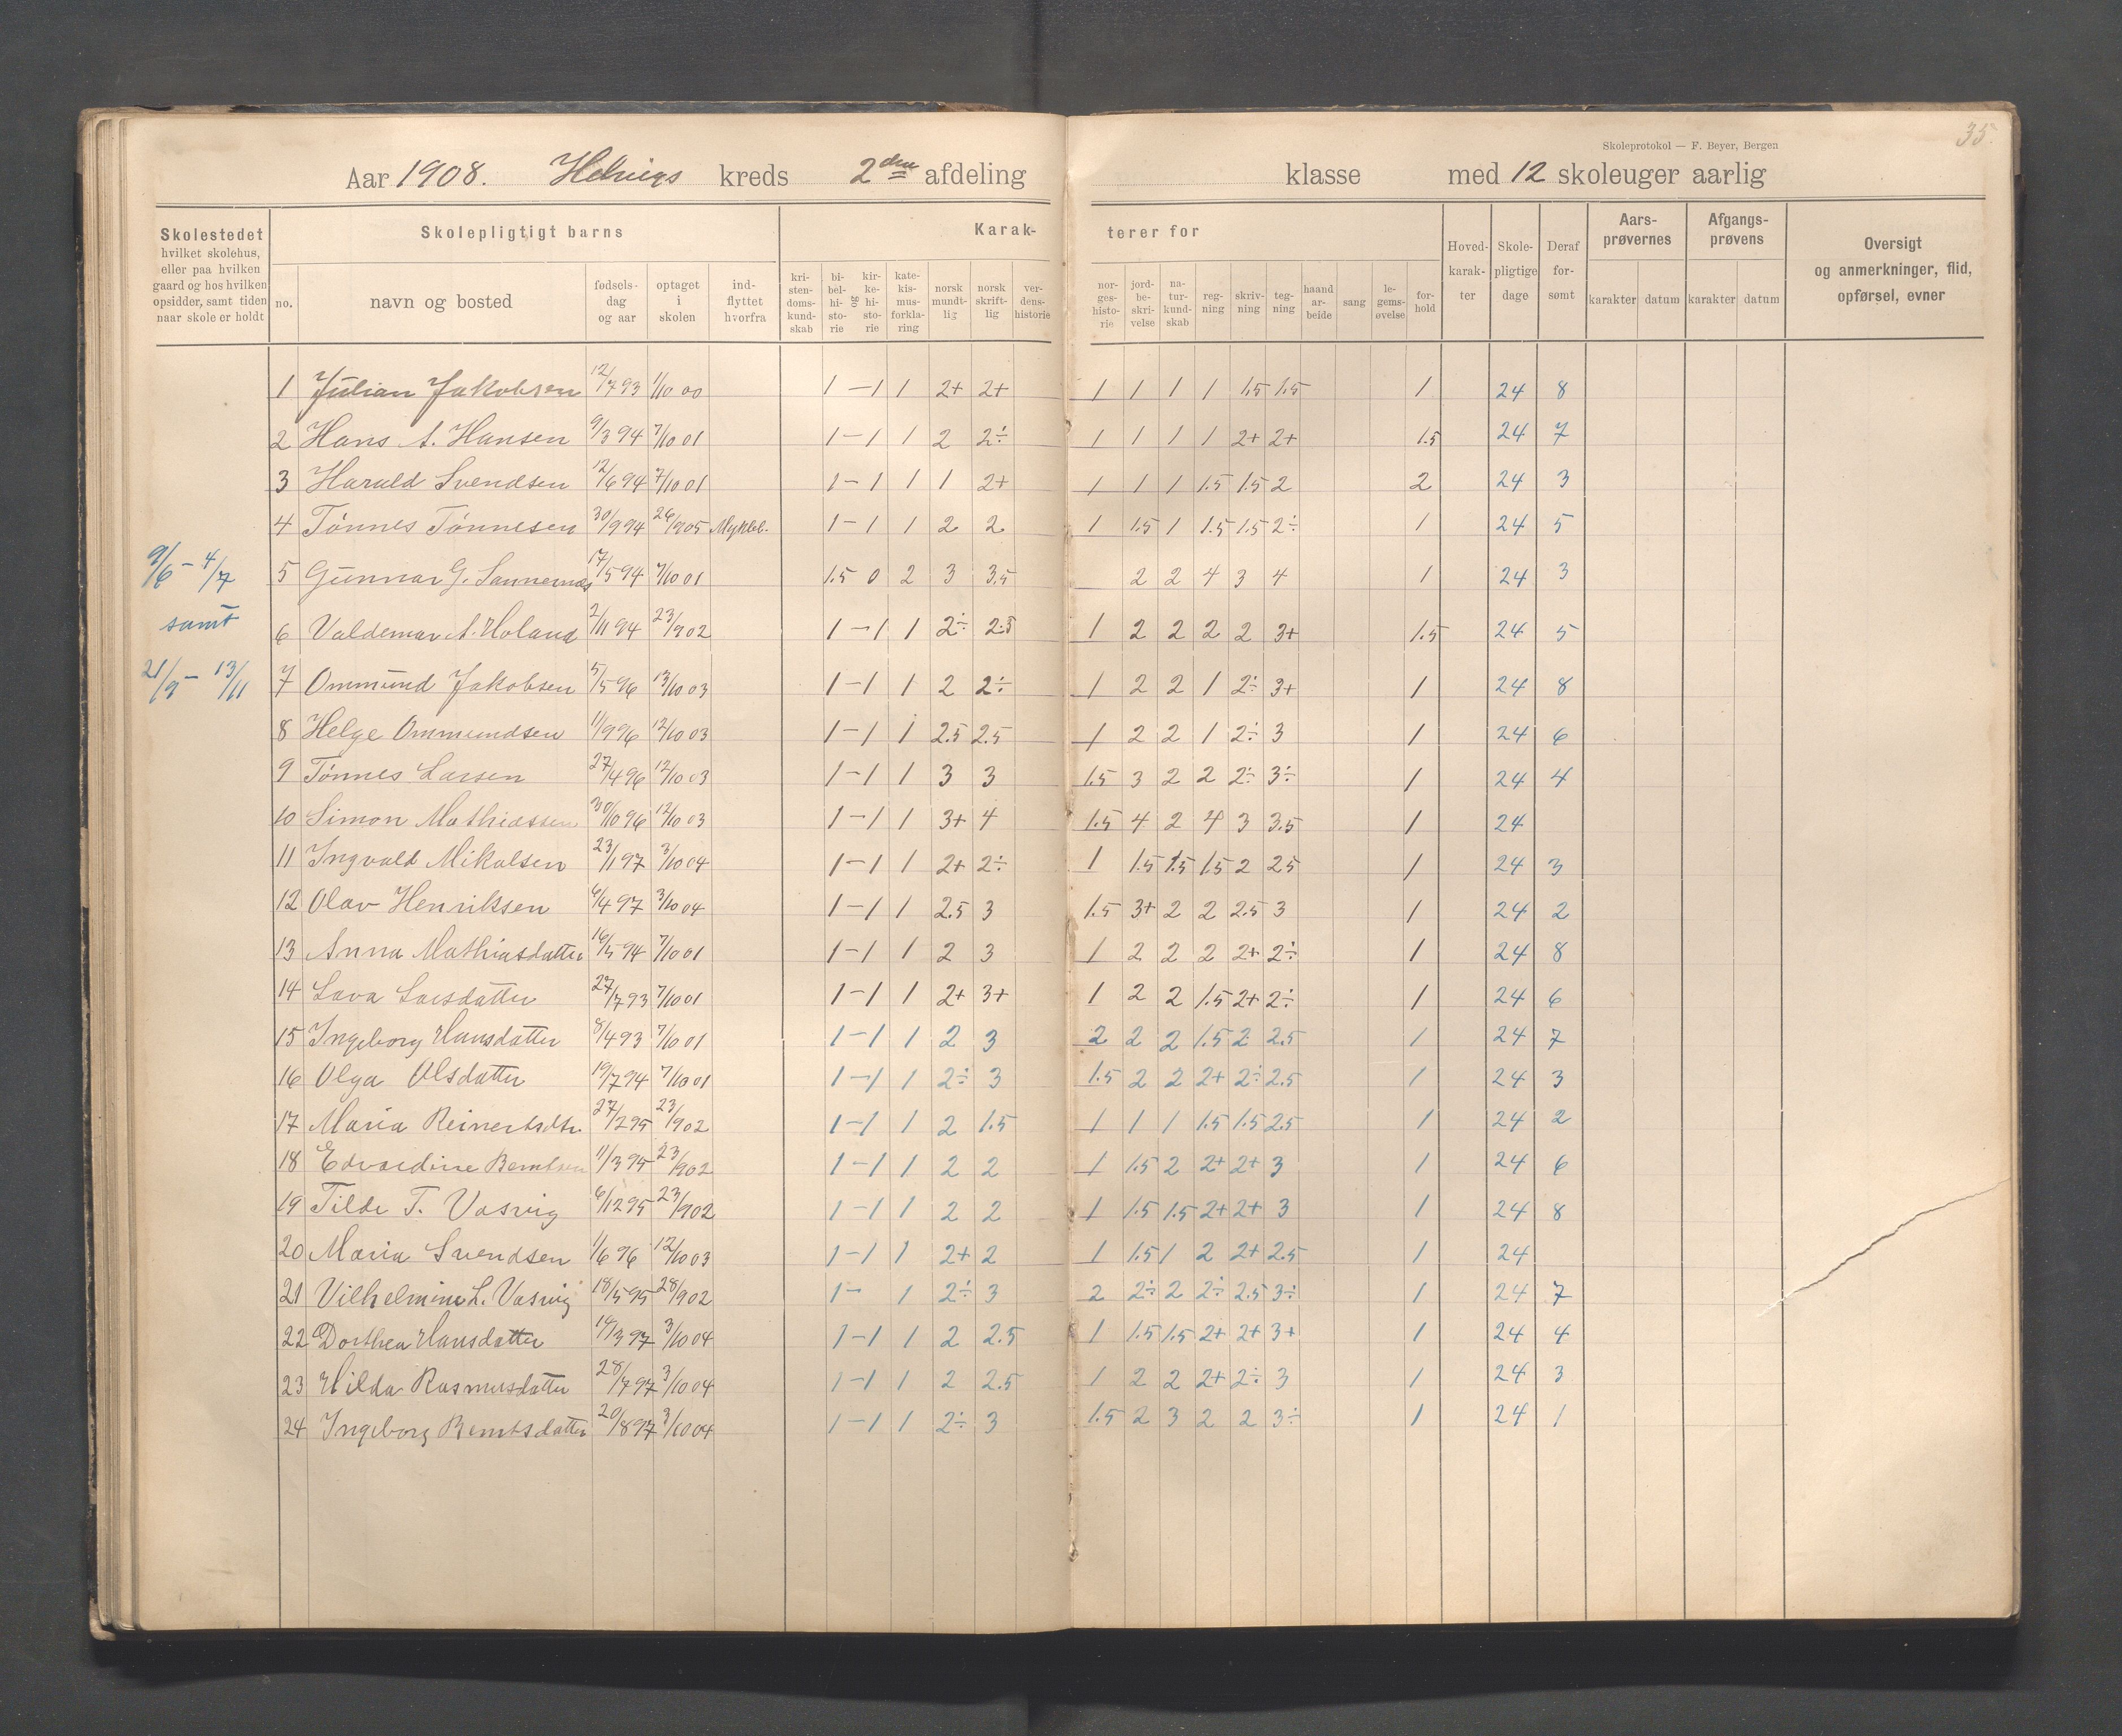 35
Skoleprotokol — F. Beyer, Bergen
Aar 1908. kreds 2den afdeling klasse med 12 skoleuger aarlig
Skolestedet hvilket skolehus, eller paa hvilken gaard og hos hvilken opsidder, samt tiden naar skole er holdt
Skolepligtigt barns
no. navn og bosted fødsels-dag og aar optaget i skolen ind-flyttet hvorfra
Karak- terer for
kri-sten-doms-kund-skab bi-bel-hi-sto-rie og kir-ke-hi-sto-rie kate-kis-mus-forkla-ring norsk mundt-lig norsk skrift-lig ver-dens-historie nor-ges-histo-rie jord-be-skri-velse na-tur-kund-skab reg-ning skriv-ning teg-ning haand ar-beide sang le-gems-øvelse for-hold
Hoved-karak-ter Skole-pligtige dage Deraf for-sømt
Aars-prøvernes karakter datum
Afgangs-prøvens karakter datum
Oversigt og anmerkninger, flid, opførsel, evner
9/6 – 4/7
samt
21/9 – 13/11
1 Julian Jakobsen 12/7 93 1/10 00 1 – 1 1 2+ 2+ 1 1 1 1 1.5 1.5 1 24 8
2 Hans A. Hansen 9/3 94 7/10 01 1 – 1 1 2 2÷ 1 1 1 1 2+ 2+ 1.5 24 7
3 Harald Svendsen 12/6 94 7/10 01 1 – 1 1 1 2+ 1 1 1 1.5 1.5 2 2 24 3
4 Tønnes Tønnesen 30/9 94 26/9 05 Mykleb. 1 – 1 1 2 2 1 1.5 1 1.5 1.5 2÷ 1 24 5
5 Gunnar G. Sannernes 17/5 94 7/10 01 1.5 0 2 3 3.5 2 2 4 3 4 1 24 3
6 Valdemar A. Holand 2/11 94 23/9 02 1 – 1 1 2÷ 2.5 1 2 2 2 2 3+ 1.5 24 5
7 Ommund Jakobsen 5/5 96 13/10 03 1 – 1 1 2 2÷ 1 2 2 1 2÷ 3+ 1 24 8
8 Helge Ommundsen 11/9 96 12/10 03 1 – 1 1 2.5 2.5 1 2 2 1 2÷ 3 1 24 6
9 Tønnes Larsen 27/4 96 12/10 03 1 – 1 1 3 3 1.5 3 2 2 2÷ 3÷ 1 24 4
10 Simon Mathiassen 30/10 96 12/10 03 1 – 1 1 3+ 4 1.5 4 2 4 3 3.5 1 24
11 Ingvald Mikalsen 23/1 97 3/10 04 1 – 1 1 2+ 2÷ 1 1.5 1.5 1.5 2 2.5 1 24 3
12 Olav Henriksen 6/4 97 3/10 04 1 – 1 1 2.5 3 1.5 3+ 2 2 2.5 3 1 24 2
13 Anna Mathiasdatter 16/5 94 7/10 01 1 – 1 1 2 3 1 2 2 2 2+ 2÷ 1 24 8
14 Lava Larsdatter 27/7 93 7/10 01 1 – 1 1 2+ 3+ 1 2 2 1.5 2+ 2÷ 1 24 6
15 Ingeborg Hansdatter 8/4 93 7/10 01 1 – 1 1 2 3 2 2 2 1.5 2 2.5 1 24 7
16 Olga Olsdatter 19/7 94 7/10 01 1 – 1 1 2÷ 3 1.5 2 2 2+ 2÷ 2.5 1 24 3
17 Maria Reinertsdtr. 27/2 95 23/9 02 1 – 1 1 2 1.5 1 1 1 1.5 1.5 2.5 1 24 2
18 Edvardine Berntsen 11/3 95 23/9 02 1 – 1 1 2 2 1 1.5 2 2+ 2+ 3 1 24 6
19 Tilde T. Vasvig 6/12 95 23/9 02 1 – 1 1 2 2 1 1.5 1.5 2+ 2+ 3 1 24 8
20 Maria Svendsen 1/6 96 12/10 03 1 – 1 1 2+ 2 1 1.5 1 2 2+ 2.5 1 24
21 Vilhelmine L. Vasvig 18/5 95 28/9 02 1 – 1 2÷ 3 2 2÷ 2 2÷ 2.5 3÷ 1 24 7
22 Dorthea Hansdatter 14/3 97 3/10 04 1 – 1 1 2 2.5 1 1.5 1.5 2+ 2+ 3+ 1 24 4
23 Hilda Rasmusdatter 28/7 97 3/10 04 1 – 1 1 2 2.5 1 2 2 2+ 2÷ 3 1 24 3
24 Ingeborg Berntsdatter 20/8 97 3/10 04 1 – 1 1 2÷ 3 1.5 2 3 2 2 3÷ 1 24 1